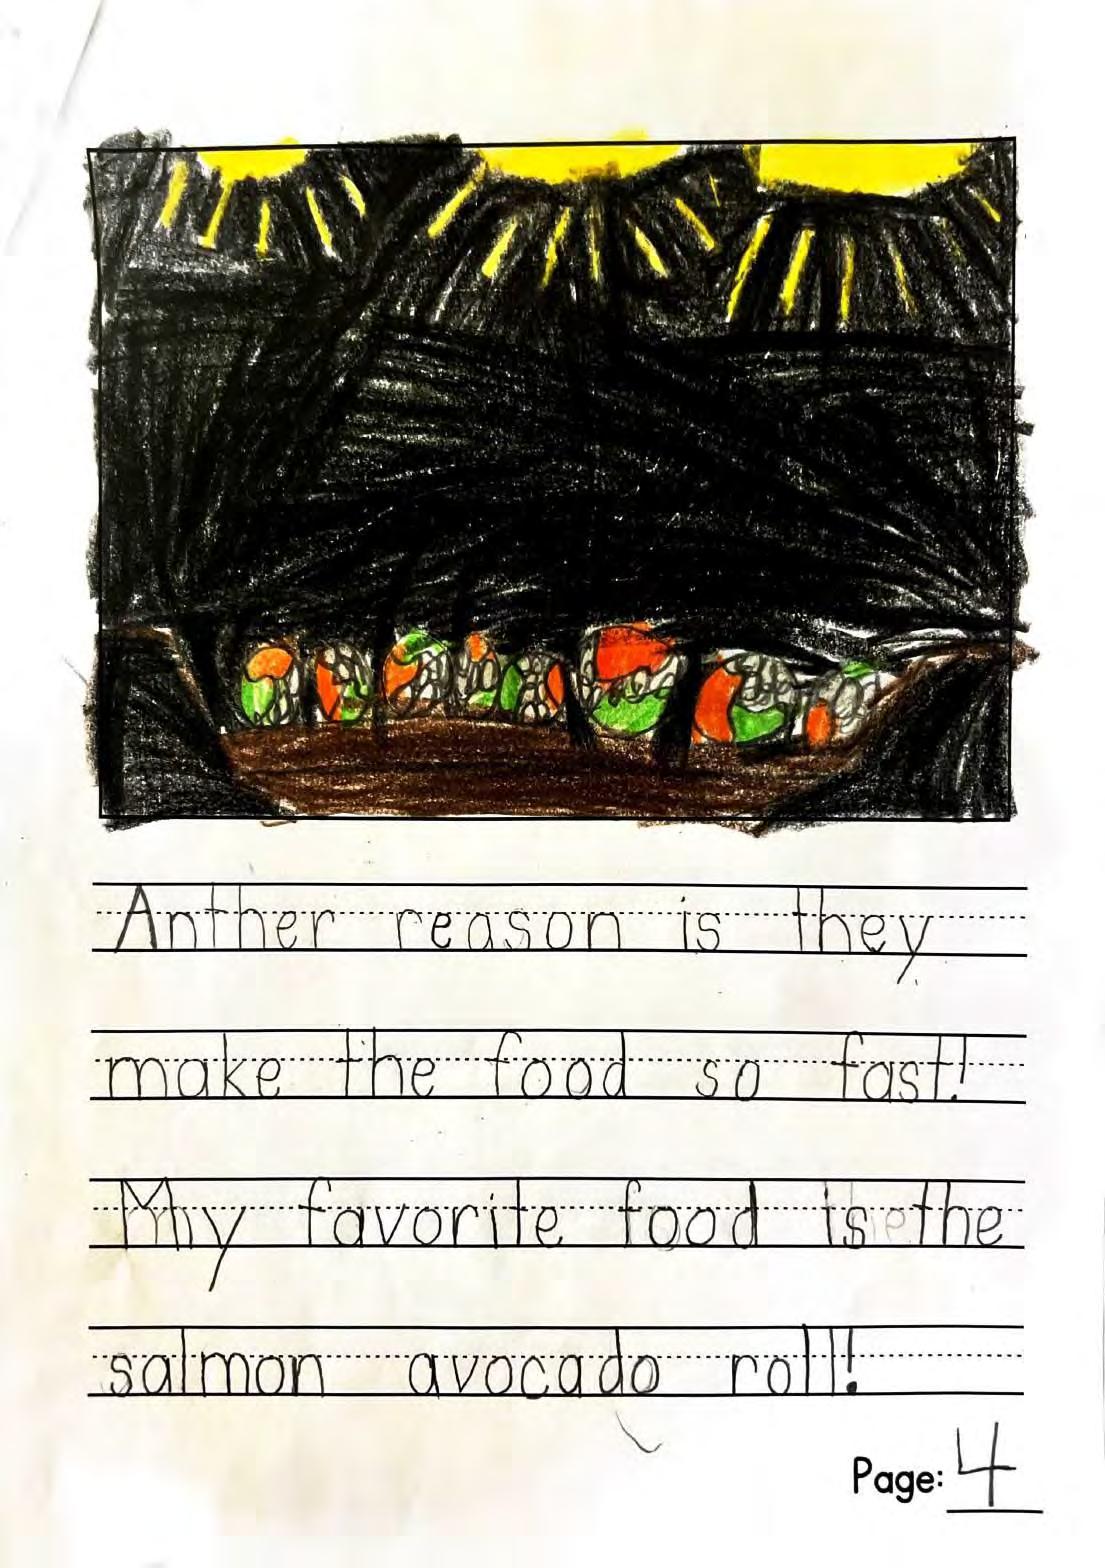 Anther reason is they
make the food so fast!
My favorite food is the
salmon avocado roll!
Page: 4